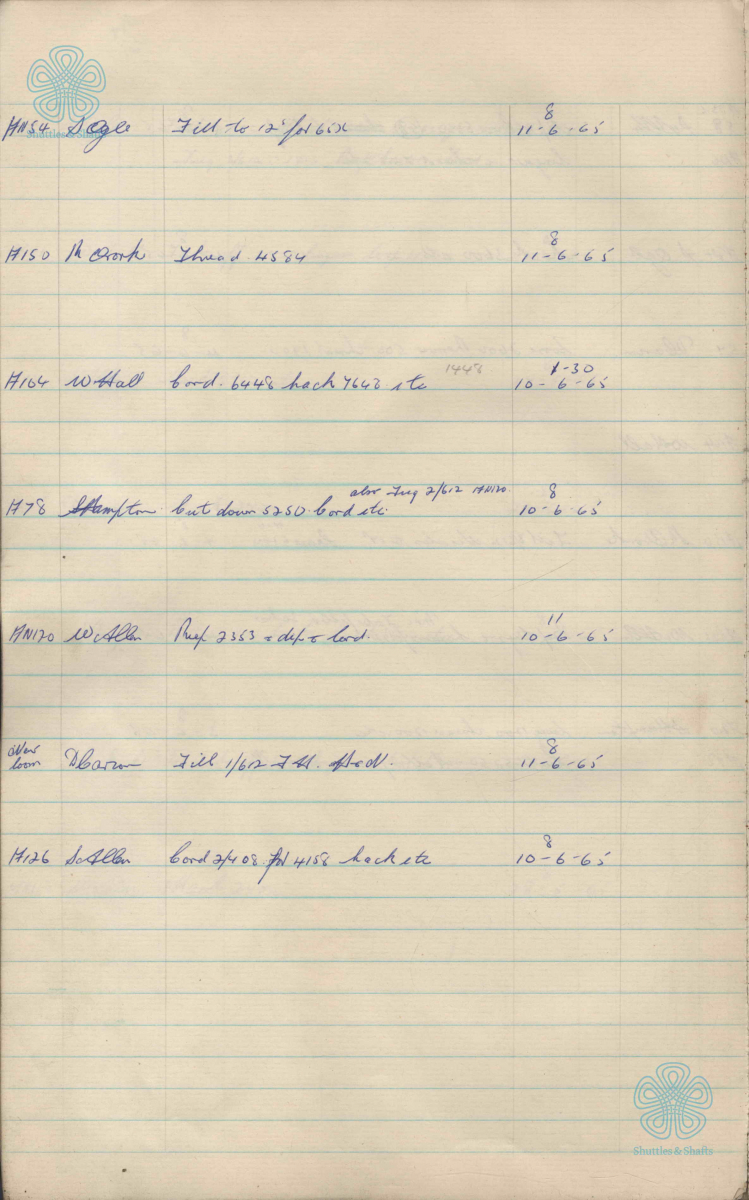 8
HN54 S Ogle Fill to 12" for 612 11-6-65
Shuttles & Shafts
8
H150 Thread. 4584 11-6-65
1448 1-30
H104 W Hall Cord. 6448 hack 7648 etc 10-6-65
also 2/612 HN120. 8
H78 S Hampton Cut down 5250. Cord etc. 10-6-65
11
HN120 W Allen Prep 2353 & dep & Cord. 10-6-65
New 8
loom Fill 1/612 11-6-65
8
H126 S Allen Cord 2/408 for 4158 hack etc 10-6-65
Shuttles & Shafts